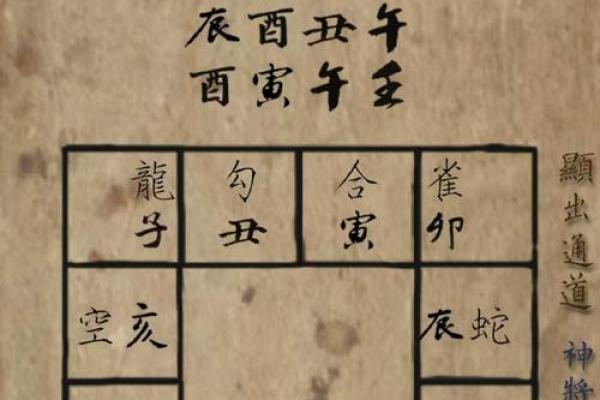 辰酉丑午
酉寅午壬
龍勾合雀
子丑寅卯
空亥 辰蛇
顯出通道 神將